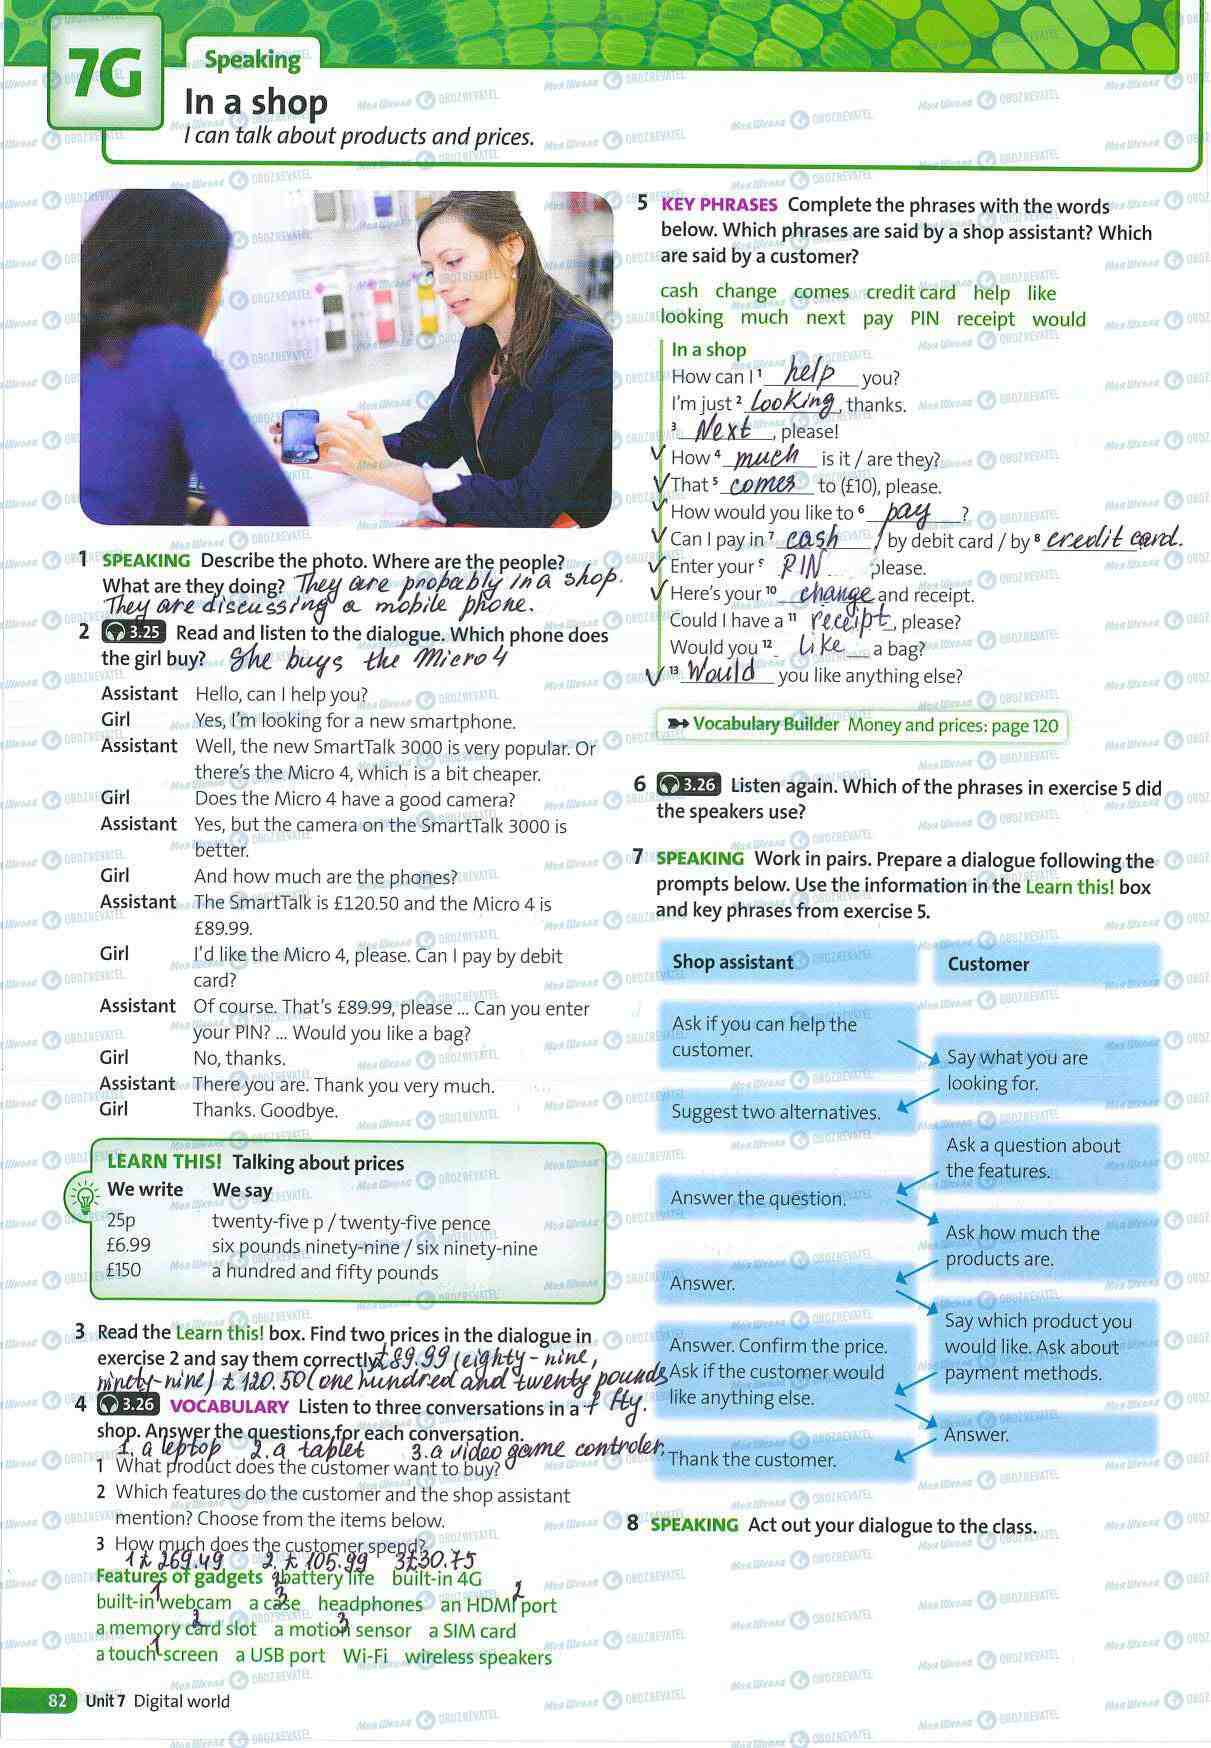 7G
Speaking
In a shop
I can talk about products and prices.
1 SPEAKING Describe the photo. Where are the people?
What are they doing? They are probably in a shop.
They are discussing a mobile phone.
2 3.25 Read and listen to the dialogue. Which phone does
the girl buy? She buys the Micro 4
Assistant Hello, can I help you?
Girl Yes, I'm looking for a new smartphone.
Assistant Well, the new SmartTalk 3000 is very popular. Or
there's the Micro 4, which is a bit cheaper.
Girl Does the Micro 4 have a good camera?
Assistant Yes, but the camera on the SmartTalk 3000 is
better.
Girl And how much are the phones?
Assistant The SmartTalk is £120.50 and the Micro 4 is
£89.99.
Girl I'd like the Micro 4, please. Can I pay by debit
card?
Assistant Of course. That's £89.99, please ... Can you enter
your PIN? ... Would you like a bag?
Girl No, thanks.
Assistant There you are. Thank you very much.
Girl Thanks. Goodbye.
LEARN THIS! Talking about prices
We write We say
25p twenty-five p / twenty-five pence
£6.99 six pounds ninety-nine / six ninety-nine
£150 a hundred and fifty pounds
3 Read the Learn this! box. Find two prices in the dialogue in
exercise 2 and say them correctly. £89.99 (eighty-nine,
ninety-nine) £120.50 (one hundred and twenty pounds
fifty.
4 3.26 VOCABULARY Listen to three conversations in a
shop. Answer the questions for each conversation.
1. a leptop 2. a tablet 3. a video game controler.
1 What product does the customer want to buy?
2 Which features do the customer and the shop assistant
mention? Choose from the items below.
3 How much does the customer spend?
1 £ 269.49 2. £ 105.99 3 £30.75
Features of gadgets 1 battery life built-in 4G
1 3 2
built-in webcam a case headphones an HDMI port
2 3
a memory card slot a motion sensor a SIM card
1
a touch screen a USB port Wi-Fi wireless speakers
82 Unit 7 Digital world
5 KEY PHRASES Complete the phrases with the words
below. Which phrases are said by a shop assistant? Which
are said by a customer?
cash change comes credit card help like
looking much next pay PIN receipt would
In a shop
How can I 1 help you?
I'm just 2 looking, thanks.
3 Next, please!
How 4 much is it / are they?
That 5 comes to (£10), please.
How would you like to 6 pay?
Can I pay in 7 cash / by debit card / by 8 credit card.
Enter your 9 PIN please.
Here's your 10 change and receipt.
Could I have a 11 receipt, please?
Would you 12 like a bag?
13 Would you like anything else?
Vocabulary Builder Money and prices: page 120
6 3.26 Listen again. Which of the phrases in exercise 5 did
the speakers use?
7 SPEAKING Work in pairs. Prepare a dialogue following the
prompts below. Use the information in the Learn this! box
and key phrases from exercise 5.
Shop assistant
Customer
Ask if you can help the
customer.
Say what you are
looking for.
Suggest two alternatives.
Ask a question about
the features.
Answer the question.
Ask how much the
products are.
Answer.
Say which product you
would like. Ask about
payment methods.
Answer. Confirm the price.
Ask if the customer would
like anything else.
Answer.
Thank the customer.
8 SPEAKING Act out your dialogue to the class.
Моя Школа OBOZREVATEL